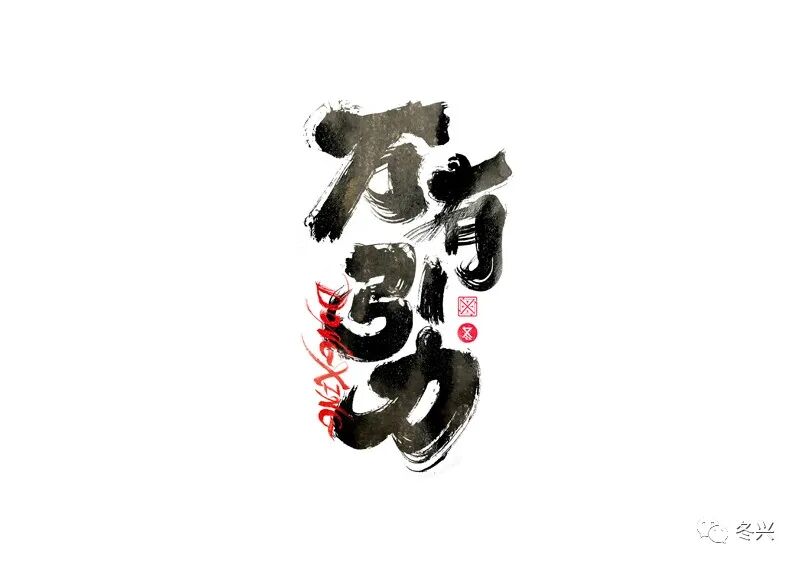 万有
引力
DONGXING
冬兴